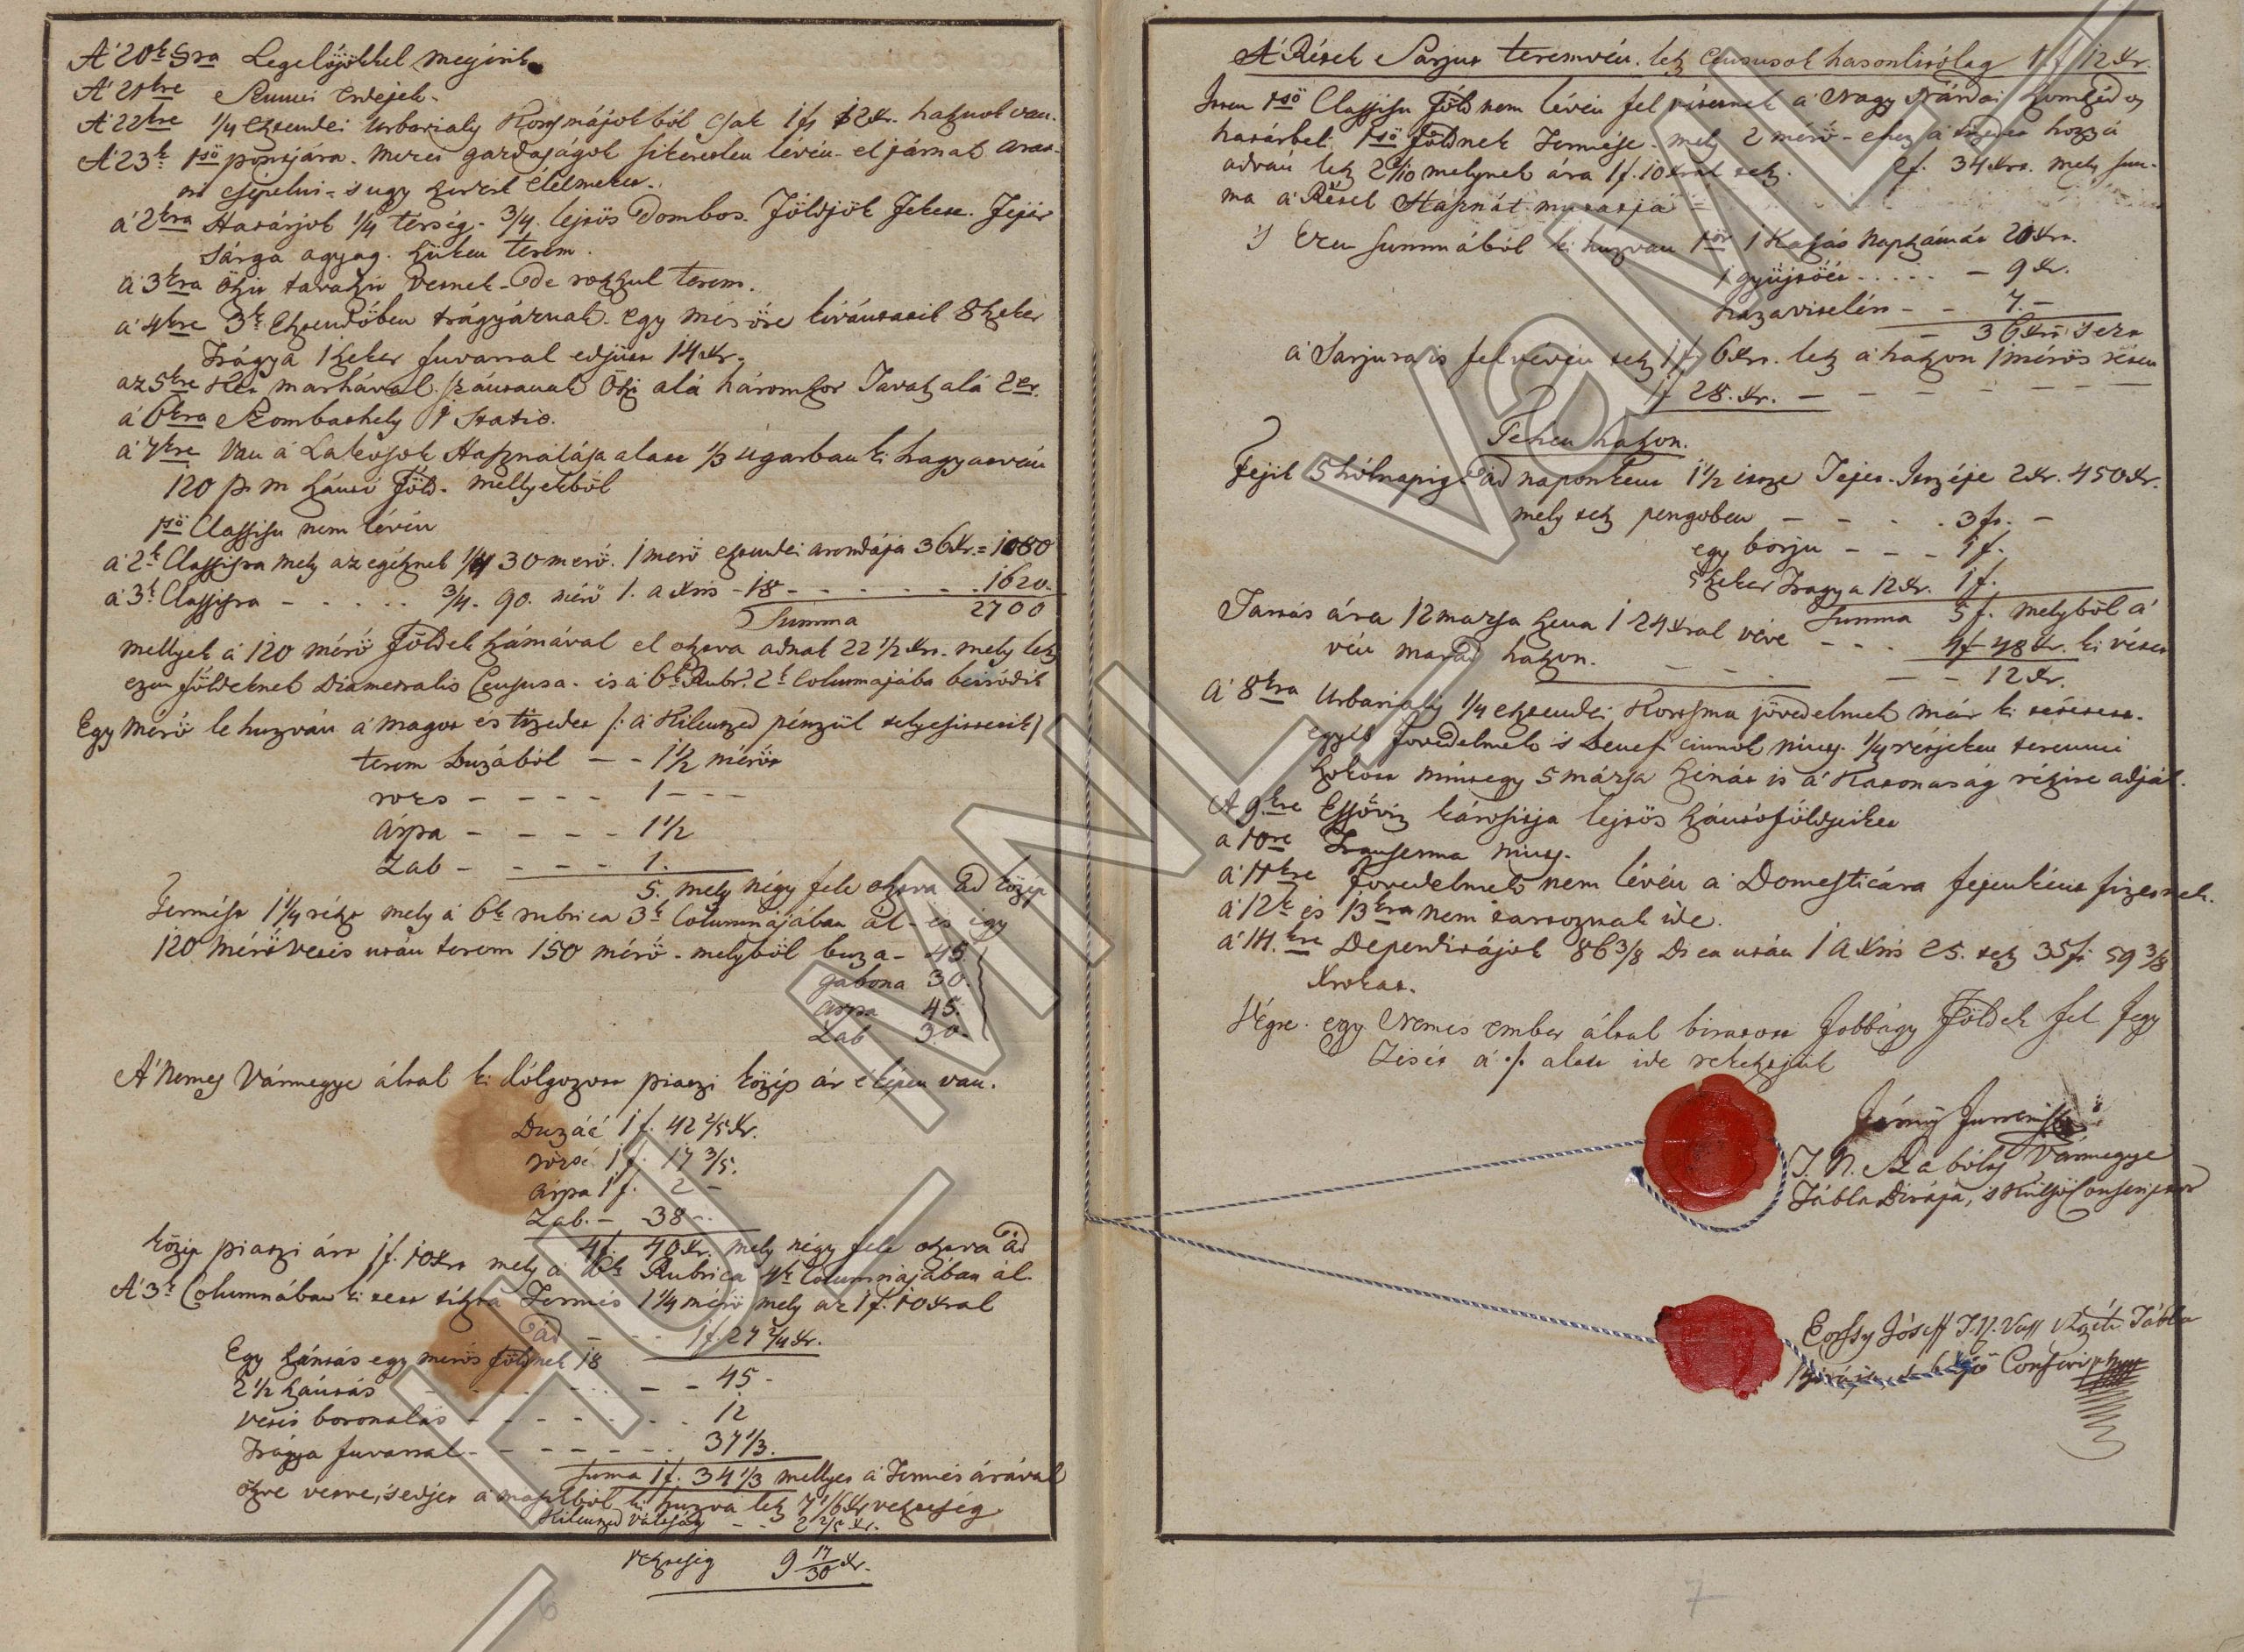 A' 20k Sra Legelőjökkel megérik
A' 21kre Semmi erdejek.
A' 22kre 1/4 esztendei Urbarialis Korsmájokból csak 1 f 12 xr. hasznok van.
A' 23k 1ső pontjára. Mezei gazdaságok sikeretlen lévén eljárnak arat-
ni csépelni - s ugy szerzik élelmeket.
a' 2kra Határjok 1/4 térség. 3/4 lejtős Dombos. Földjök Fekete. Fejér
Sárga agyag. szüken terem.
a' 3kra Őszit tavaszit vetnek - De roszul terem.
a' 4kre 3k Esztendőben trágyáznak. egy mérőre kivántatik 8 szeker
Trágya 1 szeker fuvarral edjütt 14 xr.
az 5kre Két marhával szántanak Őszi alá háromszor Tavasz alá 2er.
a' 6kra Szombathely 1 Statio.
a' 7kre Van a' Lakosok Használása alatt 1/3 ugarban ki hagyatván
120 p. m szántó Föld. mellyekből
1ső Classisu nem lévén
a' 2k Classisra mely az egésznek 1/4 30 merő. 1 merő esztendei arendája 36 xr. = 1080
a' 3k Classisra - - - - 3/4. 90. mérő 1. a xris - 18 - - - - - - 1620.
Summa 2700
mellyek a' 120 mérő Földek számával el osztva adnak 22 1/2 xrt. mely lesz
ezen földeknek Diametralis Censusa. és a' 6k Rubr. 2k Columnájába beiródik
Egy Mérő le huzván a' magot és tizedet /: a' Kilenczed pénzül telyesittetik /
terem Buzából - - 1 1/2 mérőt
rozs - - - - 1 - - -
Árpa - - - - 1 1/2
Zab - - - - 1.
5. mely négy fele osztva ad közép
Termést 1 1/4 részt mely a' 6k rubrica 3k Columnájában ál - és igy
120 mérő vetés után terem 150 mérő - melyből buza - 45.
gabona 30.
árpa 45.
Zab 30.
A' Nemes Vármegye által ki dólgozott piaczi közép ár e képen van.
Buzáé 1 f. 42 2/5 xr.
rozsé 1 f. 17 3/5.
árpa 1 f. 2 -
Zab. - 38 -
4 f. 40 xr. mely négy felé osztva ád
közép piaczi árt 1 f. 10 xrt mely a' 6k Rubrica 4k Columnájában ál.
A' 3k Columnában ki tett tiszta Termés 1 1/4 mérő mely az 1 f. 10 xral
ád - - - 1 f. 27 2/4 xr.
Egy szántás egy merős földnek 18
2 1/2 szántás - - - - - - 45 -
vetés boronalás - - - - - - 12
Trágya fuvarral - - - - - - 37 1/3.
Suma 1 f. 34 1/3 mellyet a' Termés árával
öszve vetve, s edjet a' másikból ki huzva lesz 7 1/6 xr veszteség
Kilenczed váltság - - 2 2/5 xr.
veszteség 9 17/30 xr.
A' Rétek Sarjut teremvén. lesz Censusok hasonlitólag 1 f 12 xr.
Itten 1ső Classisu Föld nem lévén fel vétetnek a' Nagy Várdai szomszéd
határbeli 1ső Földnek Termése. mely 2 mérő - ehez a' tizedet hozzá
adván lesz 2 2/10 melynek ára 1 f. 10 xral tesz. 2 f. 34 xrt. mely sum-
ma a' Rétek Hasznát mutatja =
's Ezen summából ki huzván 1ör 1 Kaszás Napszámát 20 xrt.
1 gyüjtőét - - - - 9 xr.
hazavitelért - - 7 -
- 36 xrt s ezt
a' Sarjura is fel vévén tesz 1 f. 6 xrt. lesz a' haszon 1 mérős réten
1 f 28. xr. - - - - - -
Tehen haszon.
Fejik 5 hólnapig ad naponkent 1 1/2 itcze Tejet. Itczéje 2 xr. 450 xr.
mely tesz pengoben - - - - 3 fr. -
egy borju - - - 1 f.
5 szeker Tragya 12 xr. 1 f.
Summa 5 f. melyböl a'
Tartás ára 12 mazsa szena 1 24 xral véve - - - 4 f 48 xr. ki vétet
vén marad haszon. - - - - 12 xr.
A' 8kra Urbarialis 1/4 esztendei Korsma jövedelmek már ki tétetett.
egyéb jovedelmek is Benef ciumok nincs. 1/4 részjeken teremni
szokott mintegy 5 mázsa szénát is a' Katonaság részire adják.
A' 9kre Essőviz kárositja lejtős szántóföldjeiket
a' 10re Transenna nincs.
a' 11kre Jovedelmek nem lévén a' Domesticára fejenként fizetnek.
a' 12k és 13kra nem tartoznak ide.
a' 14.kre Deperditájok 86 3/8 Di ca után 1 a xris 25. tesz 35 f. 59 3/8
xrokat.
Végre. egy Nemes ember által biratott Jobbágy Földek fel Jegy
Zését a' ·/· alatt ide rekesztjük
T. N. Szabólcs Vármegye
Tábla Birája, s Külső Conscriptor
Eörssy Jóseff T. N. Vass Vármegye Tábla
birája, s külső Conscriptor
6
7
HU MNL VaML